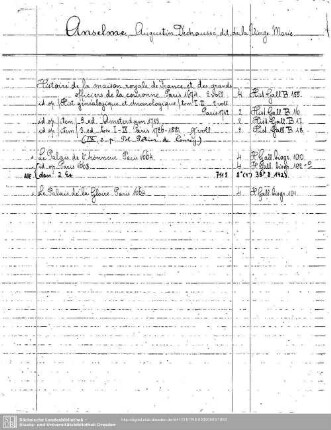 Anselme, Augustin Déchaussé, dit de la Vierge Marie
Histoire de la maison royale de France et des grands
officiers de la couronne Paris 1674. 2 voll 4 Hist Gall B 155.
id op (Hist généalogique et chronologique) tom I. II 2 voll
Paris 1712 2 Hist Gall B 16
id op (tom) 3. ed. Amsterdam 1713 2 Hist Gall B 17.
id op (tom) 3. ed. tom I-IX Paris 1726-1733 9 voll 2 Hist Gall B 18.
Le Palais de l'honneur Paris 1664 4 H Gall biogr. 100.
id op Paris 1668 4 H Gall biogr.
(dans 2 Ex
Le Palais de la Gloire Paris 4 H Gall biogr. 101.
Sächsische Landesbibliothek
Staats- und Universitätsbibliothek Dresden